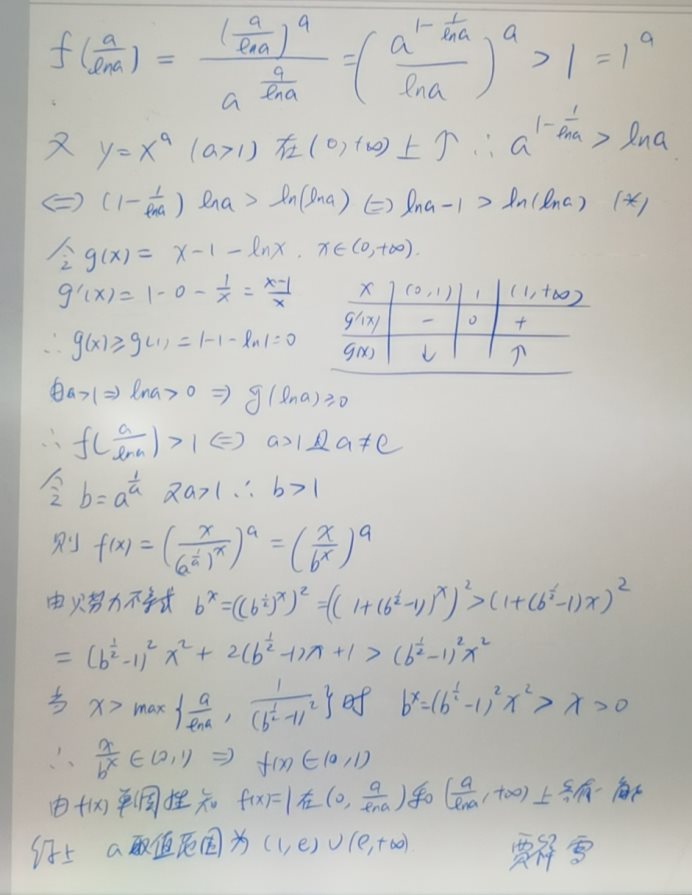 f(a/lna) = (a/lna)^a / a^(a/lna) = (a^(1-1/lna) / lna)^a > 1 = 1^a
又 y=x^a (a>1) 在(0,+∞)上↑ ∴ a^(1-1/lna) > lna
⇔ (1-1/lna) lna > ln(lna) ⇔ lna-1 > ln(lna) (*)
令 g(x) = x-1-lnx. x∈(0,+∞).
g'(x) = 1-0-1/x = (x-1)/x
x (0,1) 1 (1,+∞)
g'(x) - 0 +
g(x) ↓ ↑
∴ g(x)≥g(1) = 1-1-ln1=0
由a>1 ⇒ lna>0 ⇒ g(lna)≥0
∴ f(a/lna)>1 ⇔ a>1且a≠e
令 b=a^(1/a) 又a>1 ∴ b>1
则 f(x) = (x/(a^(1/a))^x)^a = (x/b^x)^a
由贝努力不等式 b^x=((b^(1/2))^x)^2=((1+(b^(1/2)-1))^x)^2>(1+(b^(1/2)-1)x)^2
= (b^(1/2)-1)^2 x^2 + 2(b^(1/2)-1)x+1 > (b^(1/2)-1)^2 x^2
当 x> max{a/lna, 1/(b^(1/2)-1)^2}时 b^x=(b^(1/2)-1)^2 x^2 > x >0
∴ x/b^x ∈(0,1) ⇒ f(x)∈(0,1)
由f(x)单调性知 f(x)=1在(0, a/lna)和(a/lna, +∞)上各有一解
综上 a取值范围为 (1,e)∪(e,+∞). 贾